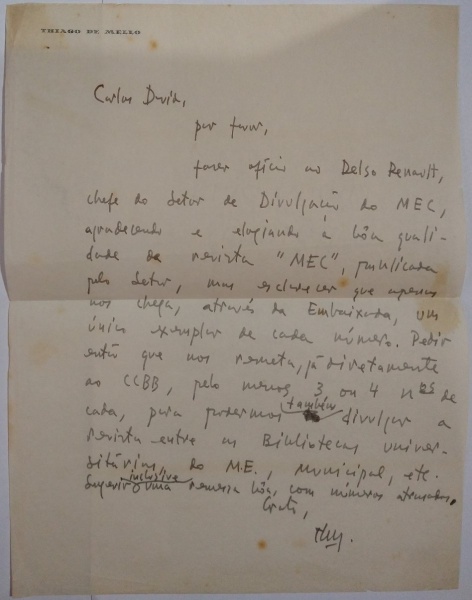 THIAGO DE MELLO
Carlos David,
por favor,
fazer ofício ao Delso Renault,
chefe do Setor de Divulgação do MEC,
agradecendo e elogiando a bôa quali-
dade da revista "MEC", publicada
pelo Setor, mas esclarecer que apenas
nos chega, através da Embaixada, um
único exemplar de cada número. Pedir
então que nos remeta, já diretamente
ao CCBB, pelo menos 3 ou 4 nos de
cada, para podermos também divulgar a
revista entre as Bibliotecas univer-
sitárias, do M.E., Municipal, etc.
Sugerir inclusive uma remessa bôa, com números atrasados.
Grato,